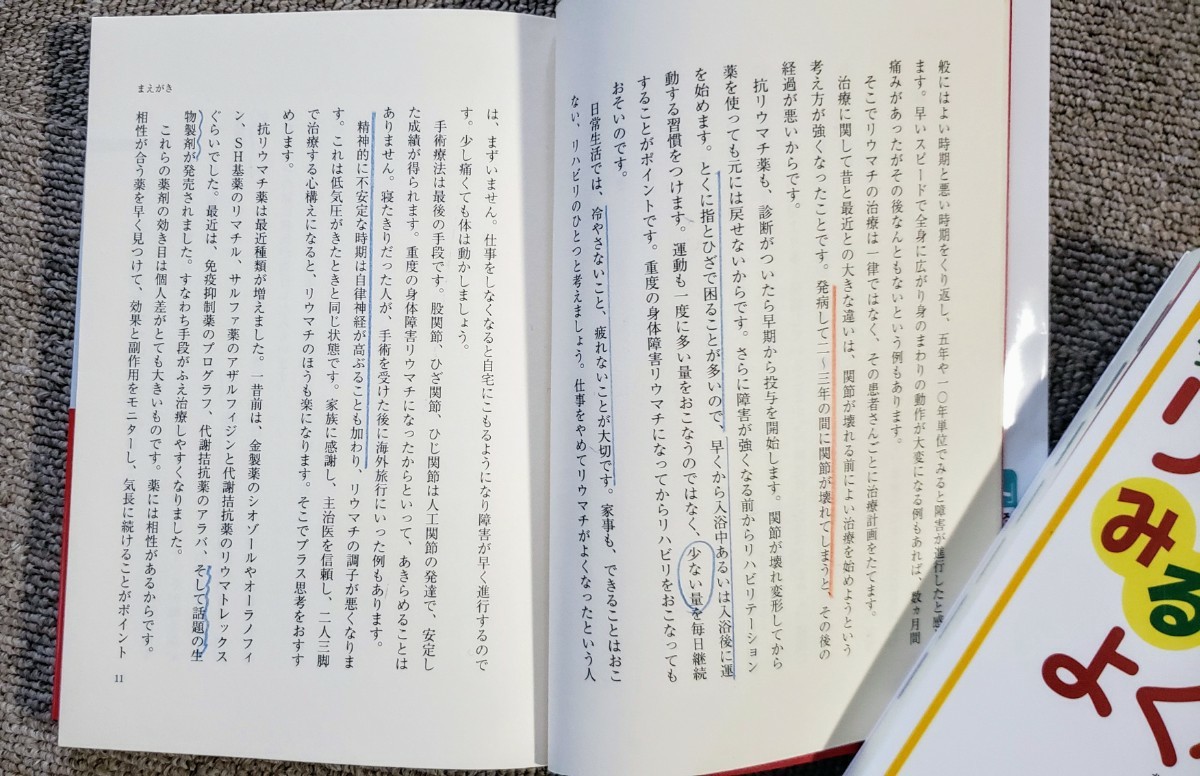 般にはよい時期と悪い時期をくり返し、五年や一〇年単位でみると障害が進行したと感
ます。早いスピードで全身に広がり身のまわりの動作が大変になる例もあれば、数ヵ月間
痛みがあったがその後なんともないという例もあります。
そこでリウマチの治療は一律ではなく、その患者さんごとに治療計画をたてます。
治療に関して昔と最近との大きな違いは、関節が壊れる前によい治療を始めようという
考え方が強くなったことです。発病して二〜三年の間に関節が壊れてしまうと、その後の
経過が悪いからです。
抗リウマチ薬も、診断がついたら早期から投与を開始します。関節が壊れ変形してから
薬を使っても元には戻せないからです。さらに障害が強くなる前からリハビリテーション
を始めます。とくに指とひざで困ることが多いので、早くから入浴中あるいは入浴後に運
動する習慣をつけます。運動も一度に多い量をおこなうのではなく、少ない量を毎日継続
することがポイントです。重度の身体障害リウマチになってからリハビリをおこなっても
おそいのです。
日常生活では、冷やさないこと、疲れないことが大切です。家事も、できることはおこ
ない、リハビリのひとつと考えましょう。仕事をやめてリウマチがよくなったという人
は、まずいません。仕事をしなくなると自宅にこもるようになり障害が早く進行するので
す。少し痛くても体は動かしましょう。
手術療法は最後の手段です。股関節、ひざ関節、ひじ関節は人工関節の発達で、安定し
た成績が得られます。重度の身体障害リウマチになったからといって、あきらめることは
ありません。寝たきりだった人が、手術を受けた後に海外旅行にいった例もあります。
精神的に不安定な時期は自律神経が高ぶることも加わり、リウマチの調子が悪くなりま
す。これは低気圧がきたときと同じ状態です。家族に感謝し、主治医を信頼し、二人三脚
で治療する心構えになると、リウマチのほうも楽になります。そこでプラス思考をおすす
めします。
抗リウマチ薬は最近種類が増えました。一昔前は、金製薬のシオゾールやオーラノフィ
ン、SH基薬のリマチル、サルファ薬のアザルフィジンと代謝拮抗薬のリウマトレックス
ぐらいでした。最近は、免疫抑制薬のプログラフ、代謝拮抗薬のアラバ、そして話題の生
物製剤が発売されました。すなわち手段がふえ治療しやすくなりました。
これらの薬剤の効き目は個人差がとても大きいものです。薬には相性があるからです。
相性が合う薬を早く見つけて、効果と副作用をモニターし、気長に続けることがポイント
まえがき
11
みる
よく